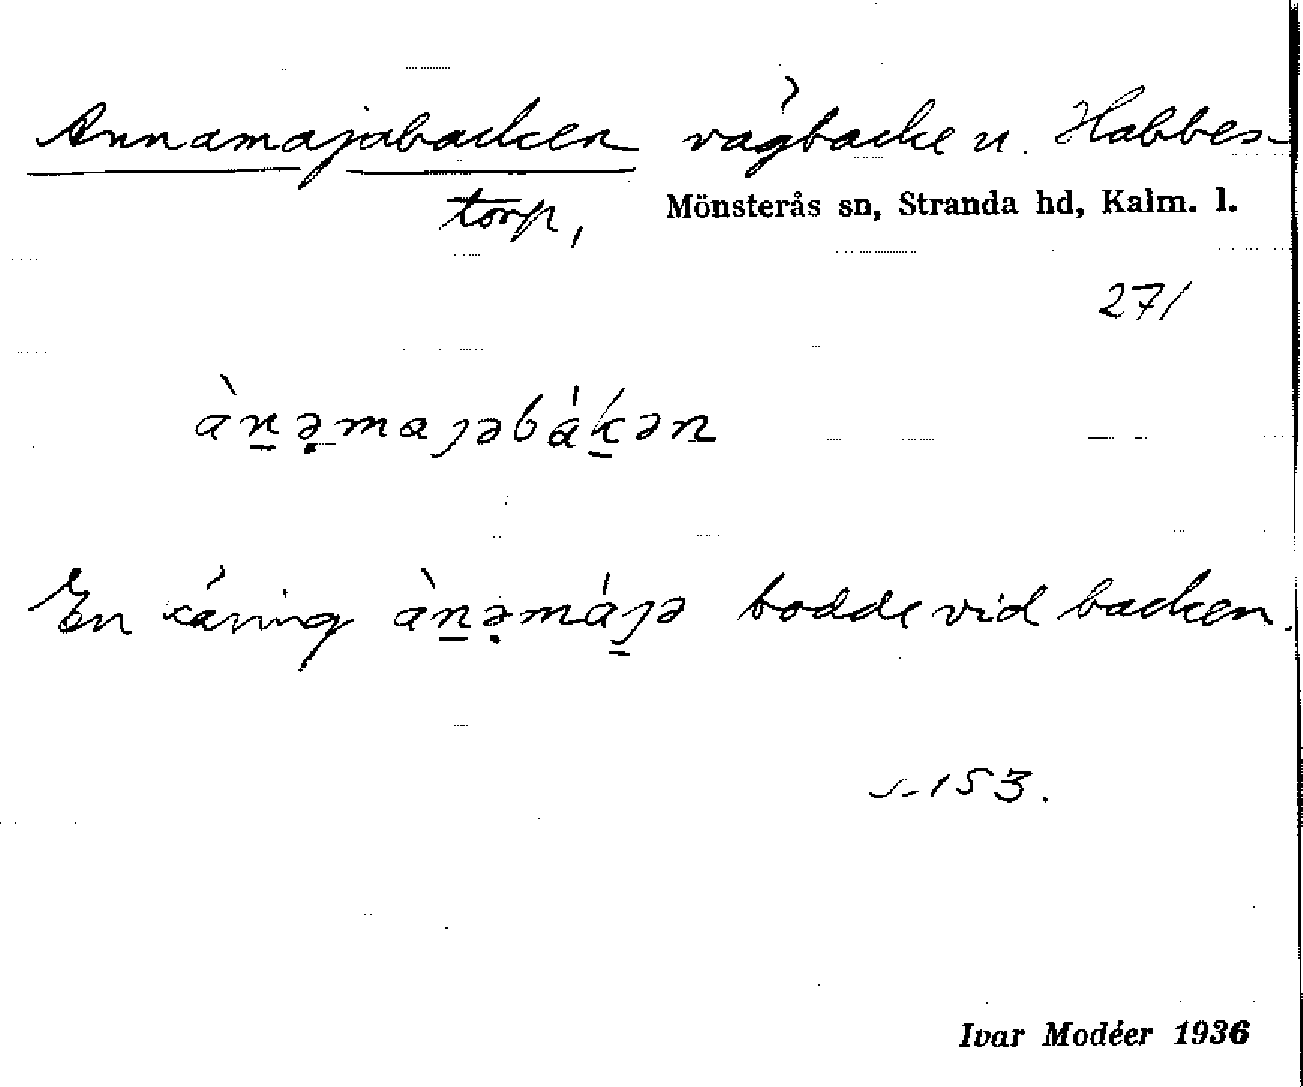 Annamajabacken vägbacke u. Habbes-
torp, Mönsterås sn, Stranda hd, Kalm. l.
271
àn̲ə̣majəbák̲ən
En käring àn̲ə̣máj̲ə bodde vid backen.
s. 153.
Ivar Modéer 1936